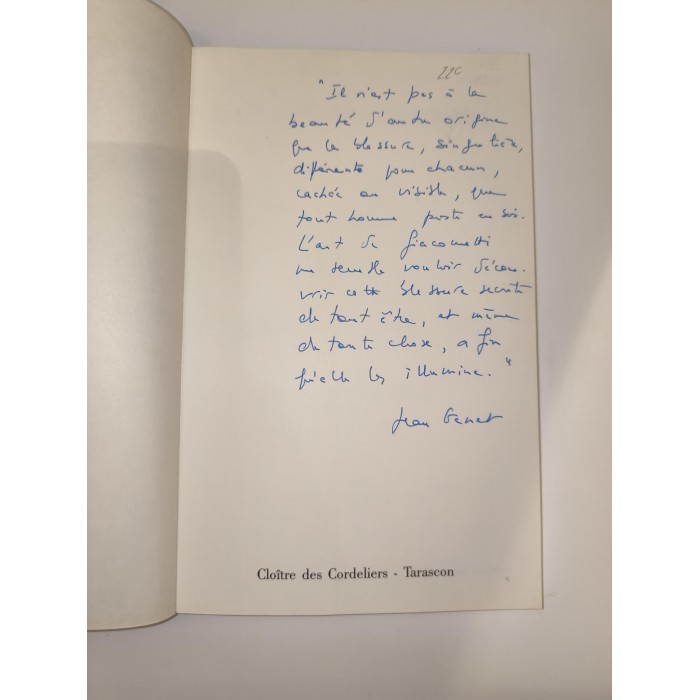 220
"Il n'est pas à la
beauté d'autre origine
que la blessure, singulière,
différente pour chacun,
cachée ou visible, que
tout homme porte en soi.
L'art de Giacometti
me semble vouloir décou-
vrir cette blessure secrète
de tout être, et même
de toute chose, afin
qu'elle les illumine."
Jean Genet
Cloître des Cordeliers - Tarascon